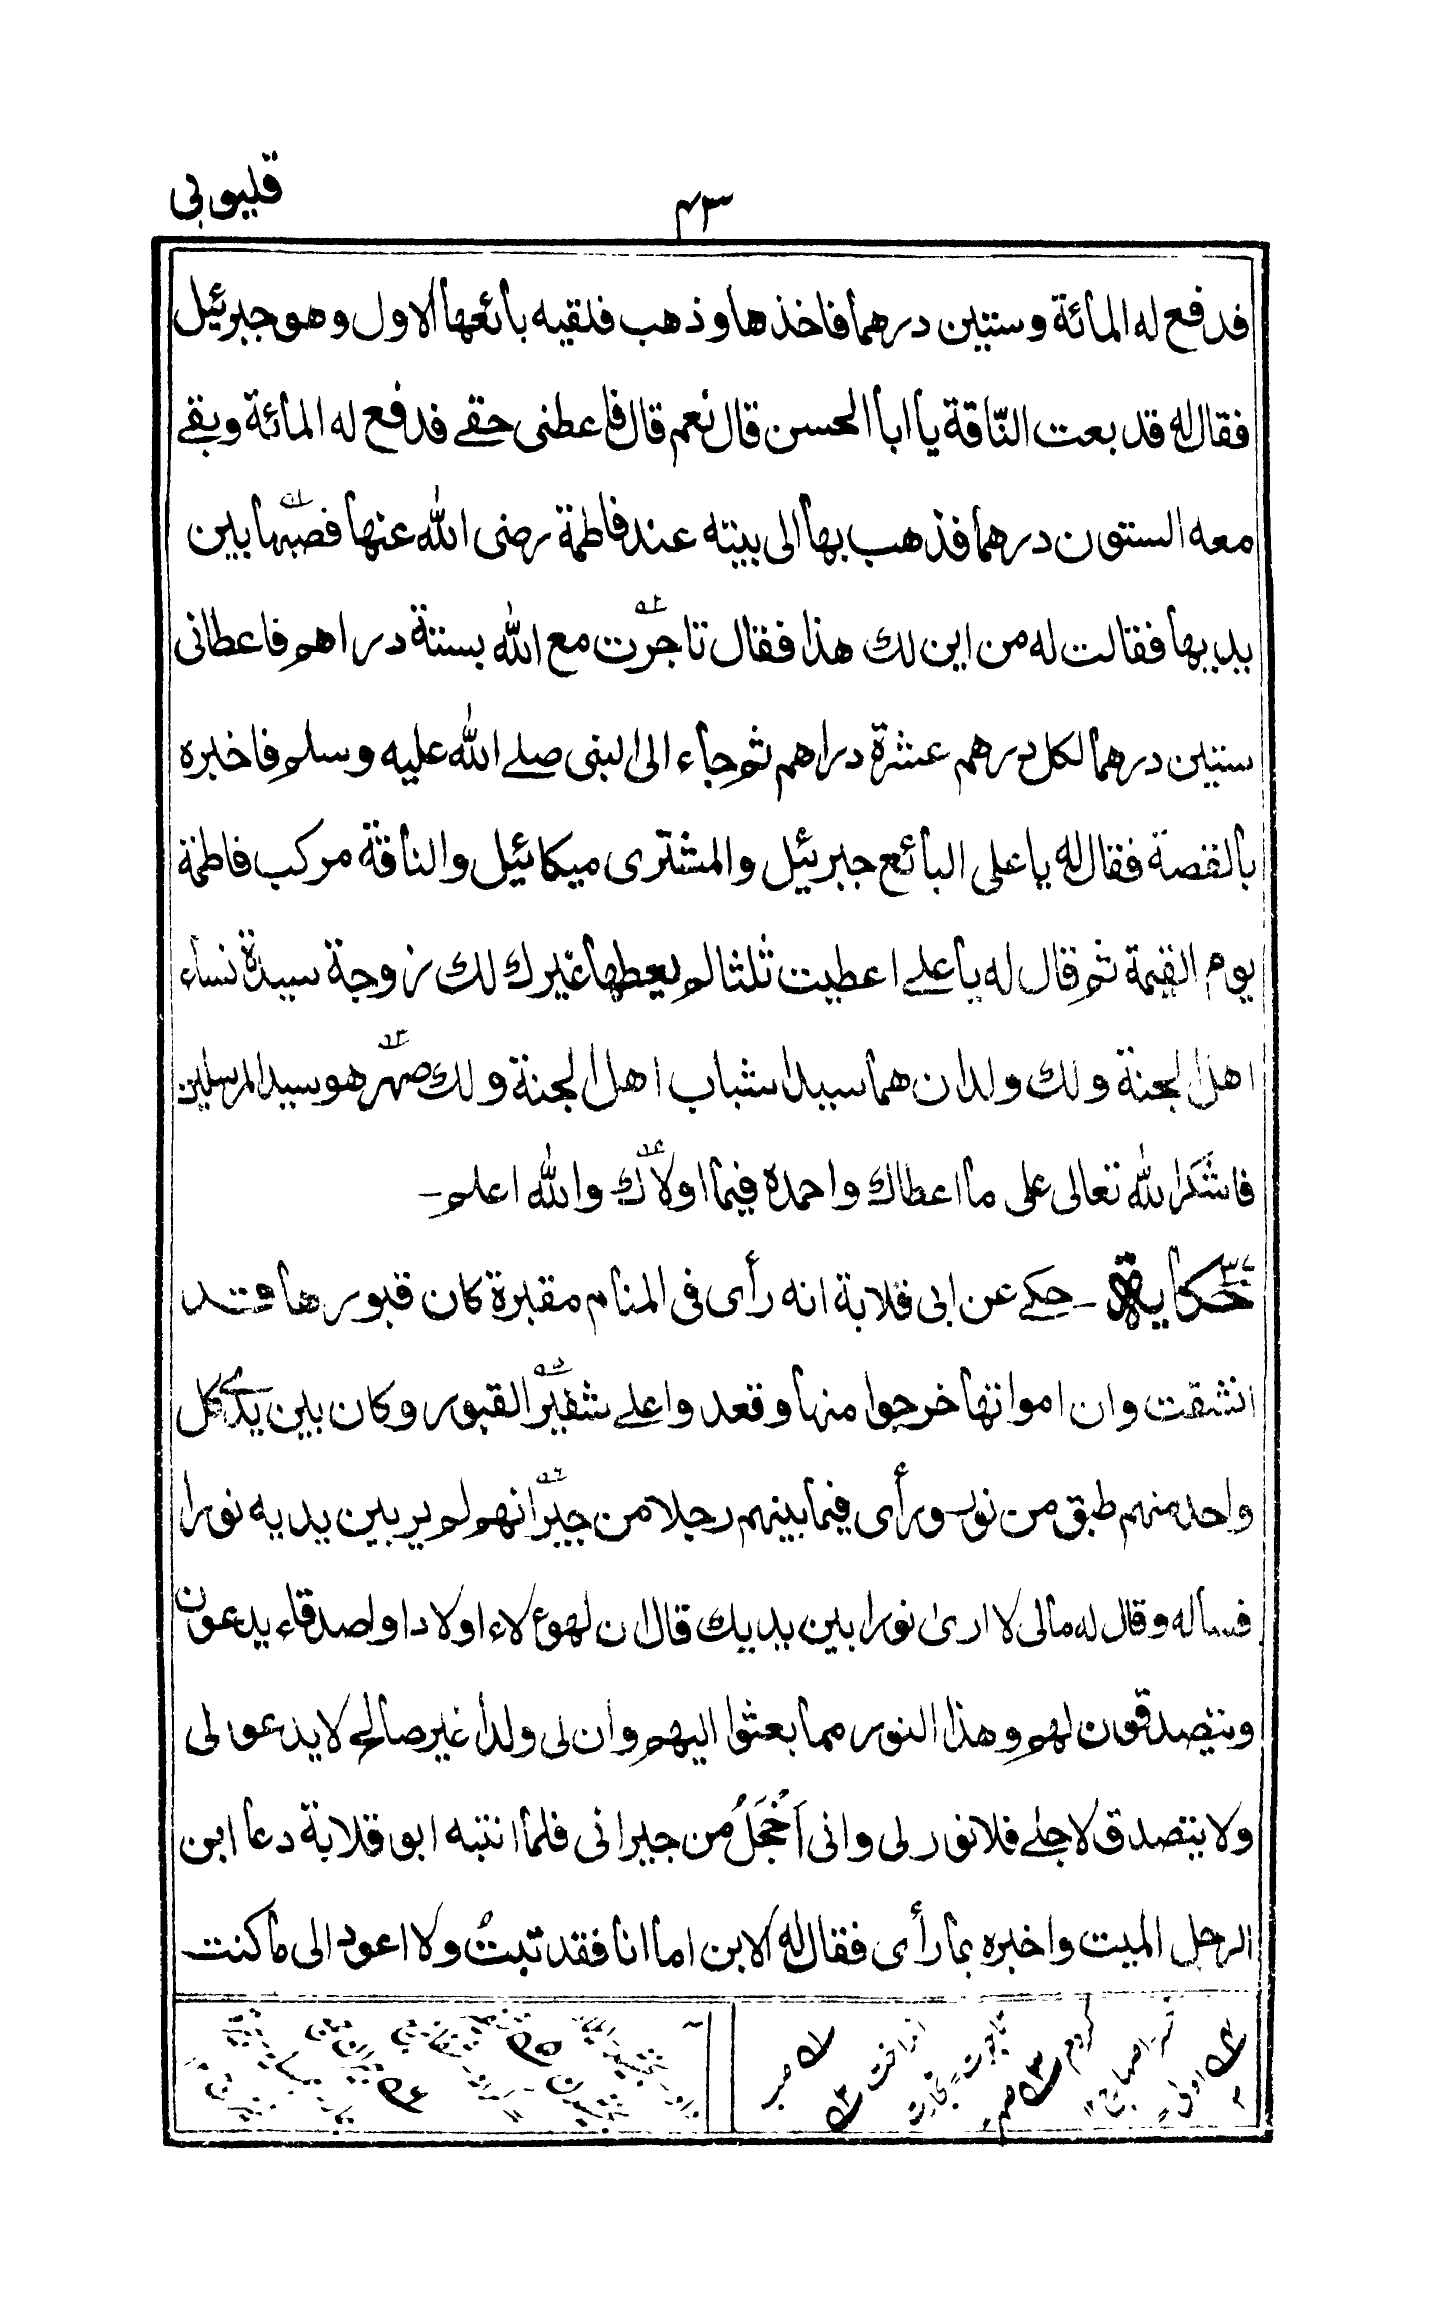 قليوبى
۴۳
فدفع له المائة وستين درهما فاخذها وذهب فلقيه بائعها الاول وهو جبرئيل
فقال له قد بعت النّاقة يا ابا الحسن قال نعم قال فاعطنى حقے فدفع له المائة وبقے
معه الستون درهما فذهب بها الى بيته عند فاطمة رضى الله عنها فصبها بين
يديها فقالت له من اين لك هذا فقال تاجرت مع الله بستة دراهم فاعطانى
ستين درهما لكل درهم عشرة دراهم ثم جاء الى النبى صلے الله عليه وسلم فاخبره
بالقصة فقال له يا على البائع جبرئيل والمشترى ميكائيل والناقة مركب فاطمة
يوم القيمة ثم قال له يا علے اعطيت ثلثا لم يعطها غيرك لك زوجة سيدة نساء
اهل الجنة ولك ولدان هما سيدا شباب اهل الجنة ولك صهر هو سيد المرسلين
فاشكر الله تعالى على ما اعطاك واحمده فيما اولاك والله اعلم۔
حكاية ۔ حكے عن ابى قلابة انه رأى فى المنام مقبرة كان قبورها قد
انشقت وان امواتها خرجوا منها وقعدوا علے شفير القبور وكان بين يدے كل
واحد منهم طبق من نور ورأى فيما بينهم رجلا من جيرانهم لم ير بين يديه نورا
فسأله وقال له مالى لا ارى نورا بين يديك قال ان لهؤلاء اولادا واصدقاء يدعون
ويتصدقون لهم وهذا النور مما بعثوا اليهم وان لى ولدا غير صالح لا يدعو لى
ولا يتصدق لاجلے فلا نور لى وانى أخْجَلُ من جيرانى فلما انتبه ابو قلابة دعا ابن
الرجل الميت واخبره بما رأى فقال له الابن اما انا فقد تبتُ ولا اعود الى ما كنت